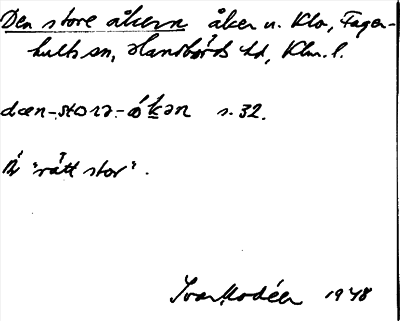 Den store åkern åker u. Klo, Fager-
hults sn, Handbörds hd, Klm. l.
dæn-stora-åkən s. 32.
Är "rätt stor".
Ivar Modéer 1948